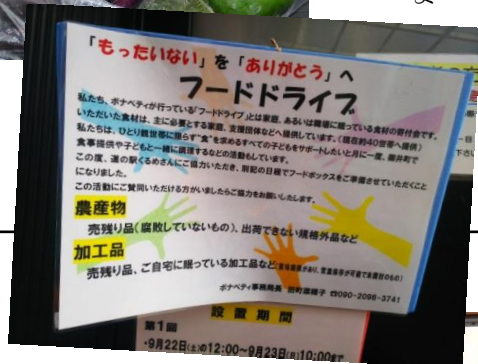 「もったいない」を「ありがとう」へ
フードドライブ
私たち、ボナペティが行っている「フードドライブ」とは家庭、あるいは職場に眠っている食材の寄付会です。
いただいた食材は、主に必要とする家庭、支援団体などへ提供しています。(現在約40世帯へ提供)
私たちは、ひとり親世帯に限らず"食"を求めるすべての子どもをサポートしたいと月に一度、
食事提供や子どもと一緒に調理するなどの活動もしています。
この度、道の駅くるめさんにご協力いただき、別記の日程でフードボックスをご準備させていただくこと
になりました。
この活動にご賛同いただける方がいましたらご協力をお願いいたします。
農産物
売残り品(腐敗していないもの)、出荷できない規格外品など
加工品
売残り品、ご自宅に眠っている加工品など(賞味期限があり、常温保存が可能で未開封のもの)
ボナペティ事務局長 ☎090-2098-3741
設置期間
第1回
・9月22日(土)の12:00~9月23日(日)10:00まで